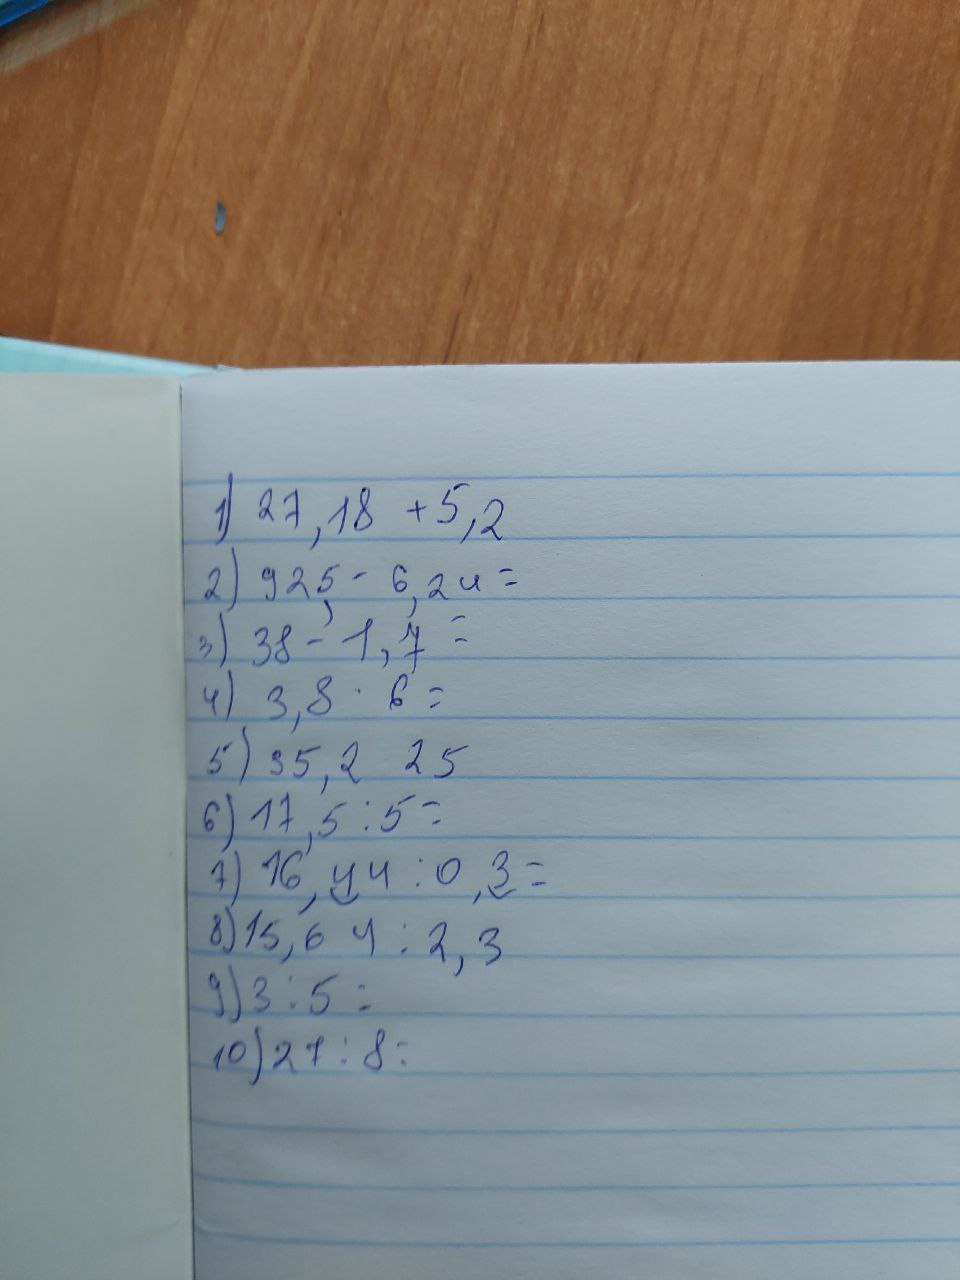 1) 27,18 + 5,2
2) 925 - 6,24 =
3) 38 - 1,7 =
4) 3,8 · 6 =
5) 35,2 25
6) 17,5 : 5 =
7) 16,44 : 0,3 =
8) 15,64 : 2,3
9) 3 : 5 =
10) 27 : 8 =